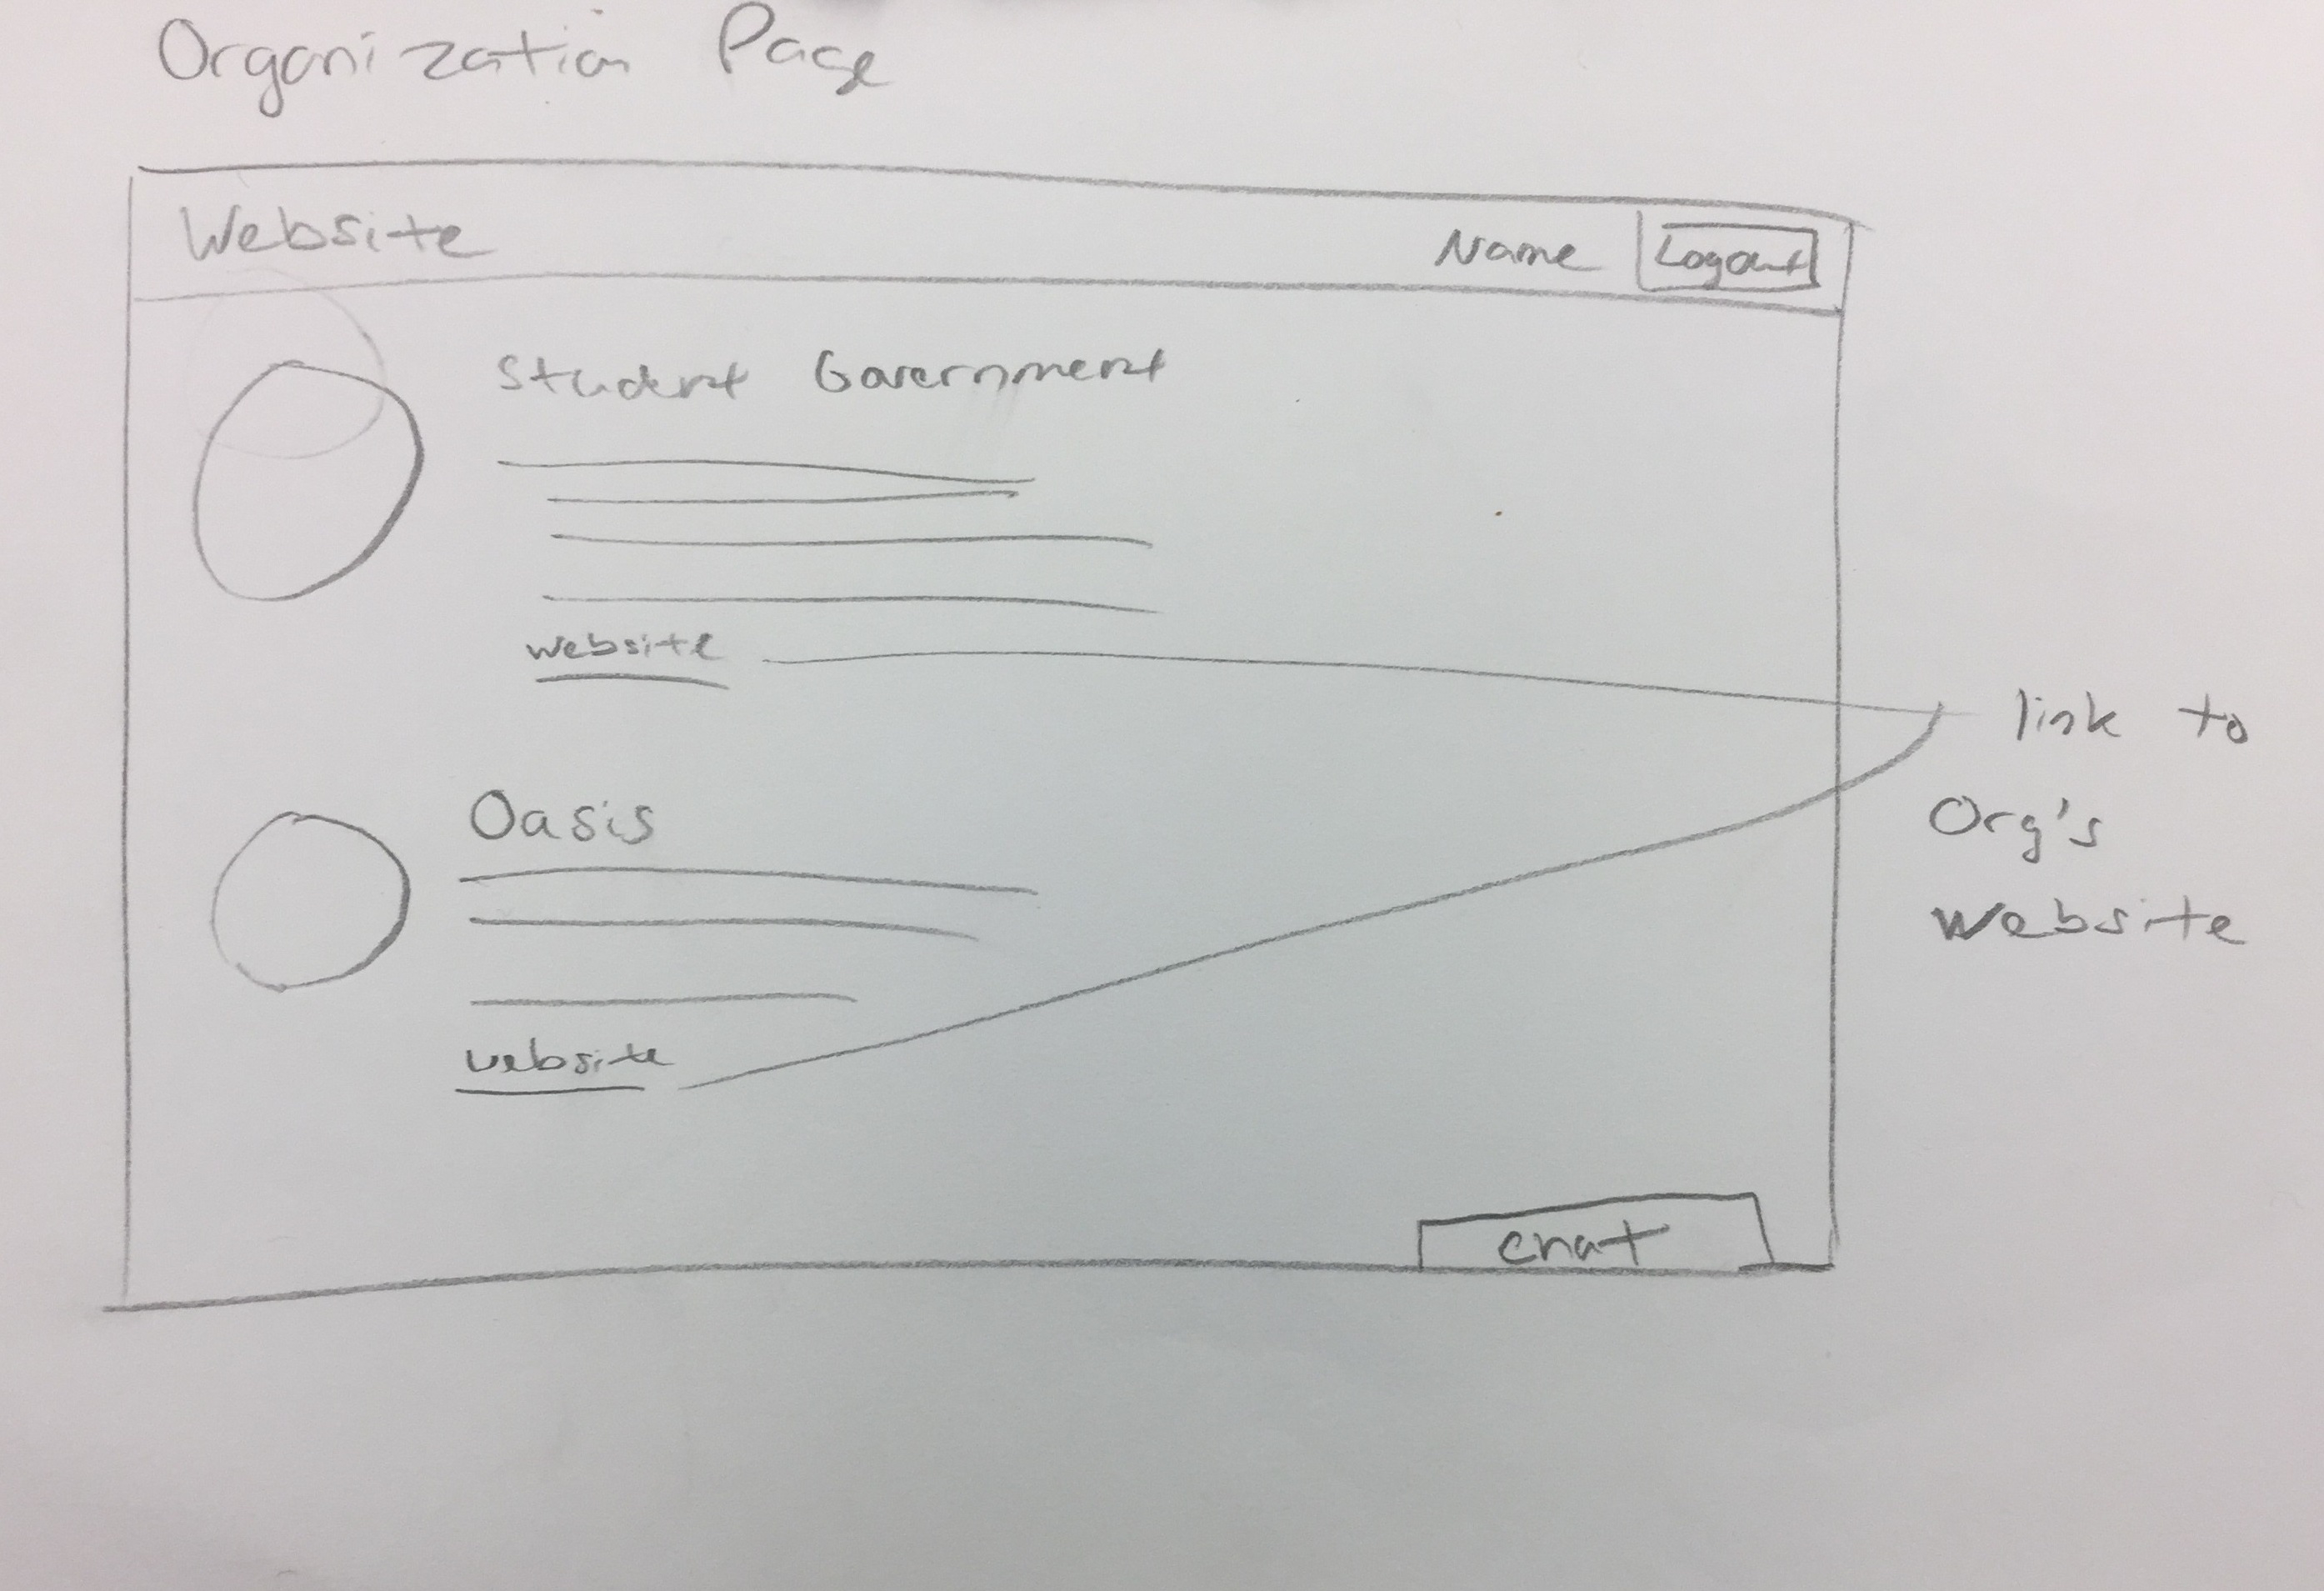 Organization Page
Website Name Logout
Student Government
website
link to
Org's
website
Oasis
website
chat